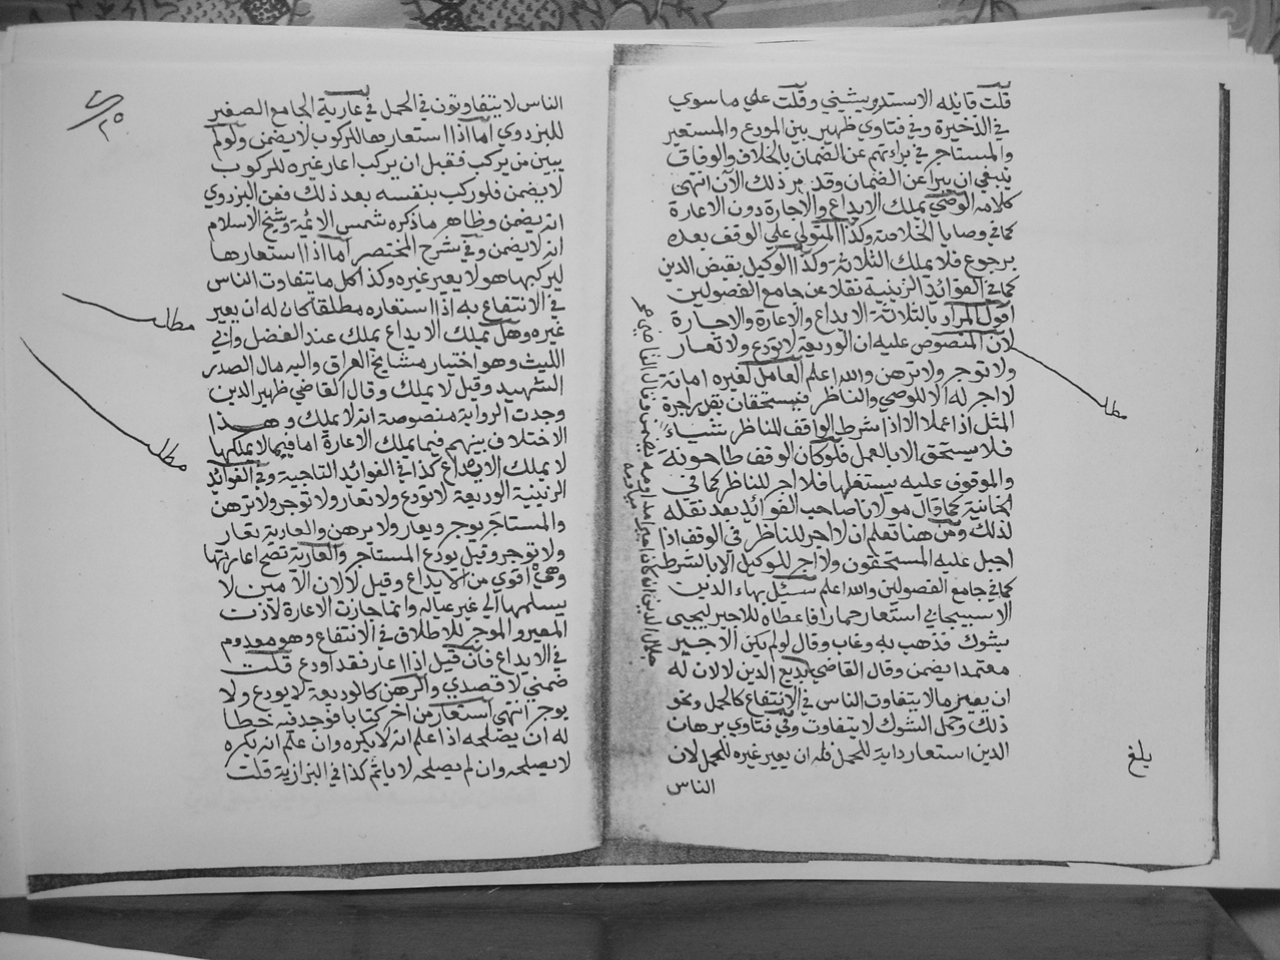 قلت قائله الاستدويشيني وقلت علي ما سوي
في الذخيرة وفي فتاوي ظهير بين المودع والمستعير
والمستاجر في براءتهم عن الضمان بالخلاف والوفاق
ينبغي ان يبرا عن الضمان وقد مر ذلك الآن انتهى
كلامه الوصي يملك الايداع والاجارة دون الاعارة
كما في وصايا الخلاصة وكذا المتولي علي الوقف بعده
برجوع فلا يملك الثلاثة وكذا الوكيل بقبض الدين
كما في الفوائد الزينية نقلا عن جامع الفصولين
اقول المراد بالثلاثة الايداع والاعارة والاجارة
لان المنصوص عليه ان الوديعة لا تودع ولا تعار
ولا توجر ولا ترهن والله اعلم العامل لغيره امانة
لا اجر له الا للوصي والناظر فيستحقان بقدر اجرة
المثل اذا عملا الا اذا شرط الواقف للناظر شياء
فلا يستحق الا بالعمل فلو كان الوقف طاحونة
والموقوف عليه يستغلها فلا اجر للناظر كما في
الخانية كما قال مولانا صاحب الفوائد بعد نقله
لذلك ومن هنا تعلم ان لا اجر للناظر في الوقف اذا
احيل عليه المستحقون ولا اجر للوكيل الا بالشرط
كما في جامع الفصولين والله اعلم سئيل بهاء الدين
الاسبيجابي استعار حمارا فاعطاه للاجير ليجيي
بشوك فذهب به وغاب وقال لو لم يكن الاجير
معتمدا يضمن وقال القاضي بديع الدين لا لان له
ان يعير مالا يتفاوت الناس في الانتفاع كالحمل ونحو
ذلك وحمل الشوك لا يتفاوت وفي فتاوي برهان
الدين استعار دابة للحمل فله ان يعير غيره للحمل لان
الناس
مطلب
بلغ
الناس لا يتفاوتون في الحمل في عارية الجامع الصغير
للبزدوي اما اذا استعارها للركوب لا يضمن ولو لم
يبين من يركب فقبل ان يركب اعار غيره للركوب
لا يضمن فلو ركب بنفسه بعد ذلك فعن البزدوي
انه يضمن وظاهر ما ذكره شمس الائمة وشيخ الاسلام
انه لا يضمن وفي شرح المختصر اما اذا استعارها
ليركبها هو لا يعير غيره وكذا كل ما يتفاوت الناس
في الانتفاع به اذا استعاره مطلقا كان له ان يعير
غيره وهل يملك الايداع يملك عند الفضل وابي
الليث وهو اختيار مشايخ العراق واليه مال الصدر
الشهيد وقيل لا يملك وقال القاضي ظهير الدين
وجدت الرواية منصوصة انه لا يملك وهذا
الاختلاف بينهم فيما يملك الاعارة اما فيما لا يملكها
لا يملك الايداع كذا في الفوائد التاجية وفي الفوائد
الزينية الوديعة لا تودع ولا تعار ولا توجر ولا ترهن
والمستاجر يوجر ويعار ولا يرهن والعارية تعار
ولا توجر وقيل يودع المستاجر والعارية تصح اعارتها
وهي اقوي من الايداع وقيل لا لان الامين لا
يسلمها الي غير عياله وانما جازت الاعارة لاذن
المعير والموجر للاطلاق في الانتفاع وهو معدوم
في الايداع فان قيل اذا اعار فقد اودع قلت
ضمني لا قصدي والرهن كالوديعة لا يودع ولا
يوجر انتهى استعار من اخر كتابا فوجد فيه خطا
له ان يصلحه اذا علم انه لا يكره وان علم انه يكره
لا يصلحه وان لم يصلحه لا ياثم كذا في البزازية قلت
مطلب
مطلب